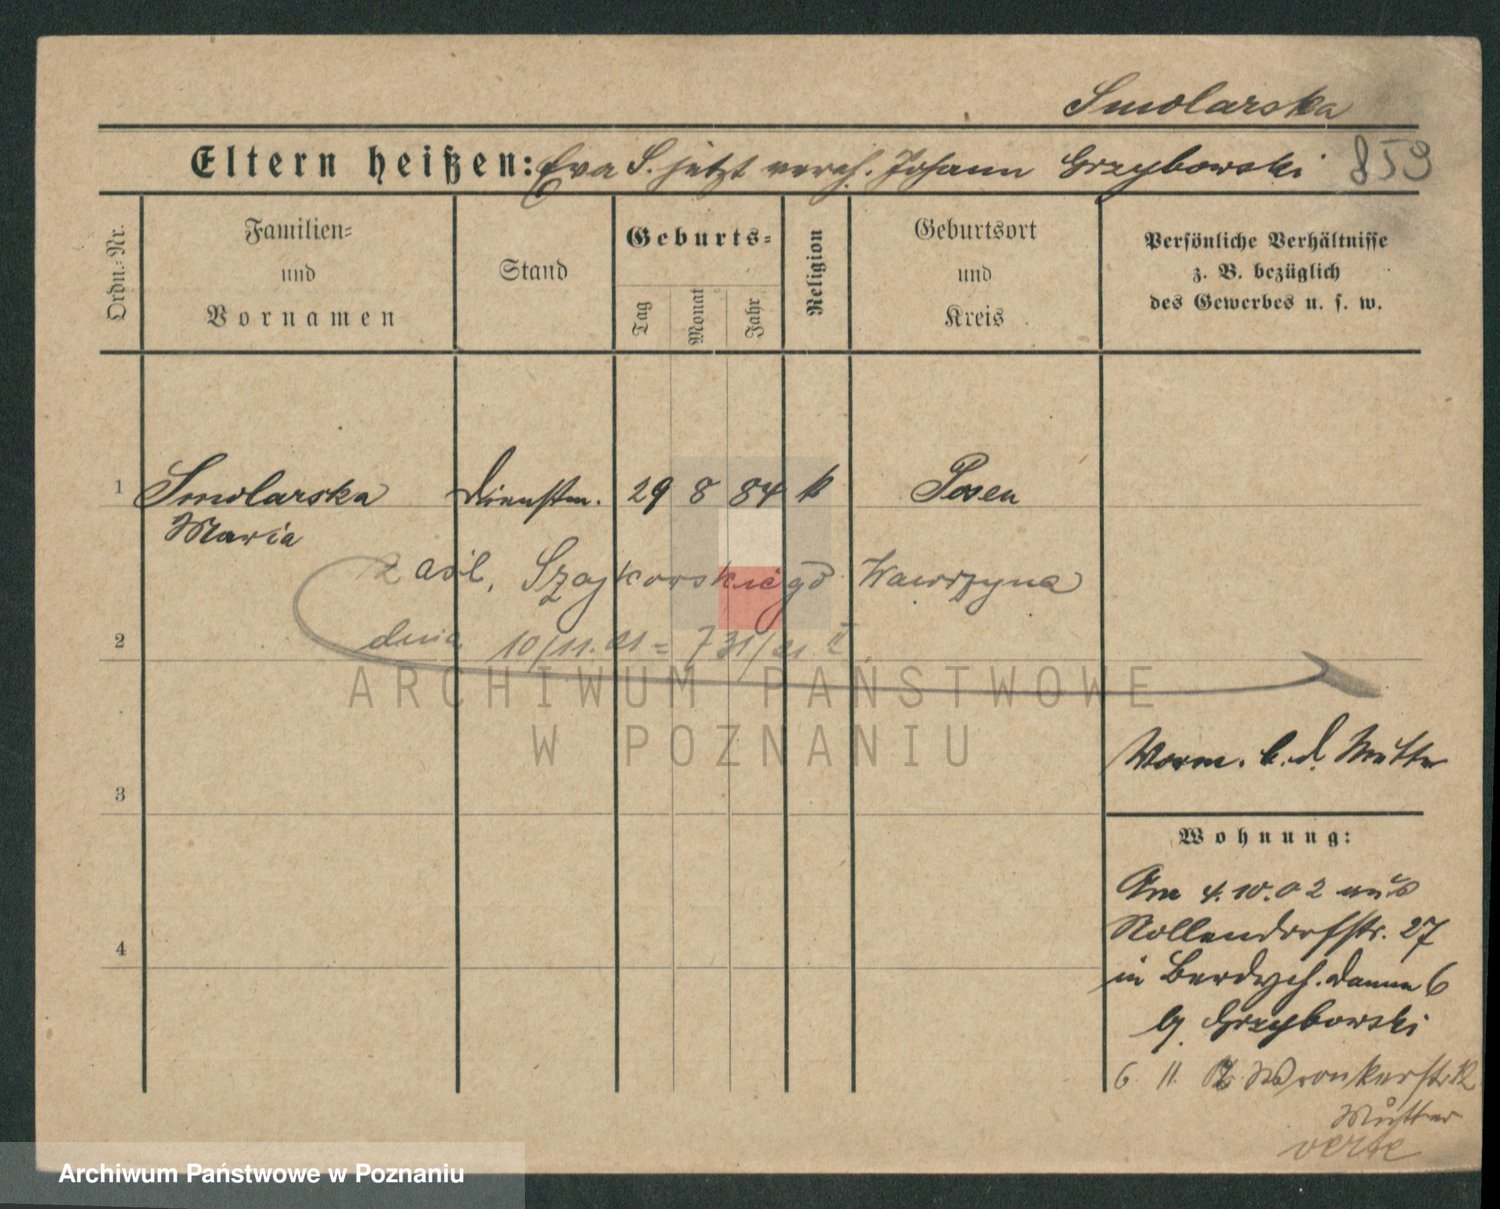 Smolarska
Eltern heißen: Eva S. jetzt vereh. Johann Grzybowski 859
Ordn.-Nr.
Familien- und Vornamen
Stand
Geburts-
Tag
Monat
Jahr
Religion
Geburtsort und Kreis
Persönliche Verhältnisse z. B. bezüglich des Gewerbes u. s. w.
1 Smolarska Dienstm. 29 8 84 k Posen
Maria
zaśl. Szajkowskiego Wawrzyna
dnia 10/11.21 = 731/21 II
2
ARCHIWUM PAŃSTWOWE
W POZNANIU
Vorm. b. d. Mutter
3
Wohnung:
Am 4.10.02 aus
Nollendorfstr. 27
in Berdych. Damm 6
4
b/ Grzybowski
6 11 Wronkerstr. 12
Mutter
verte
Archiwum Państwowe w Poznaniu